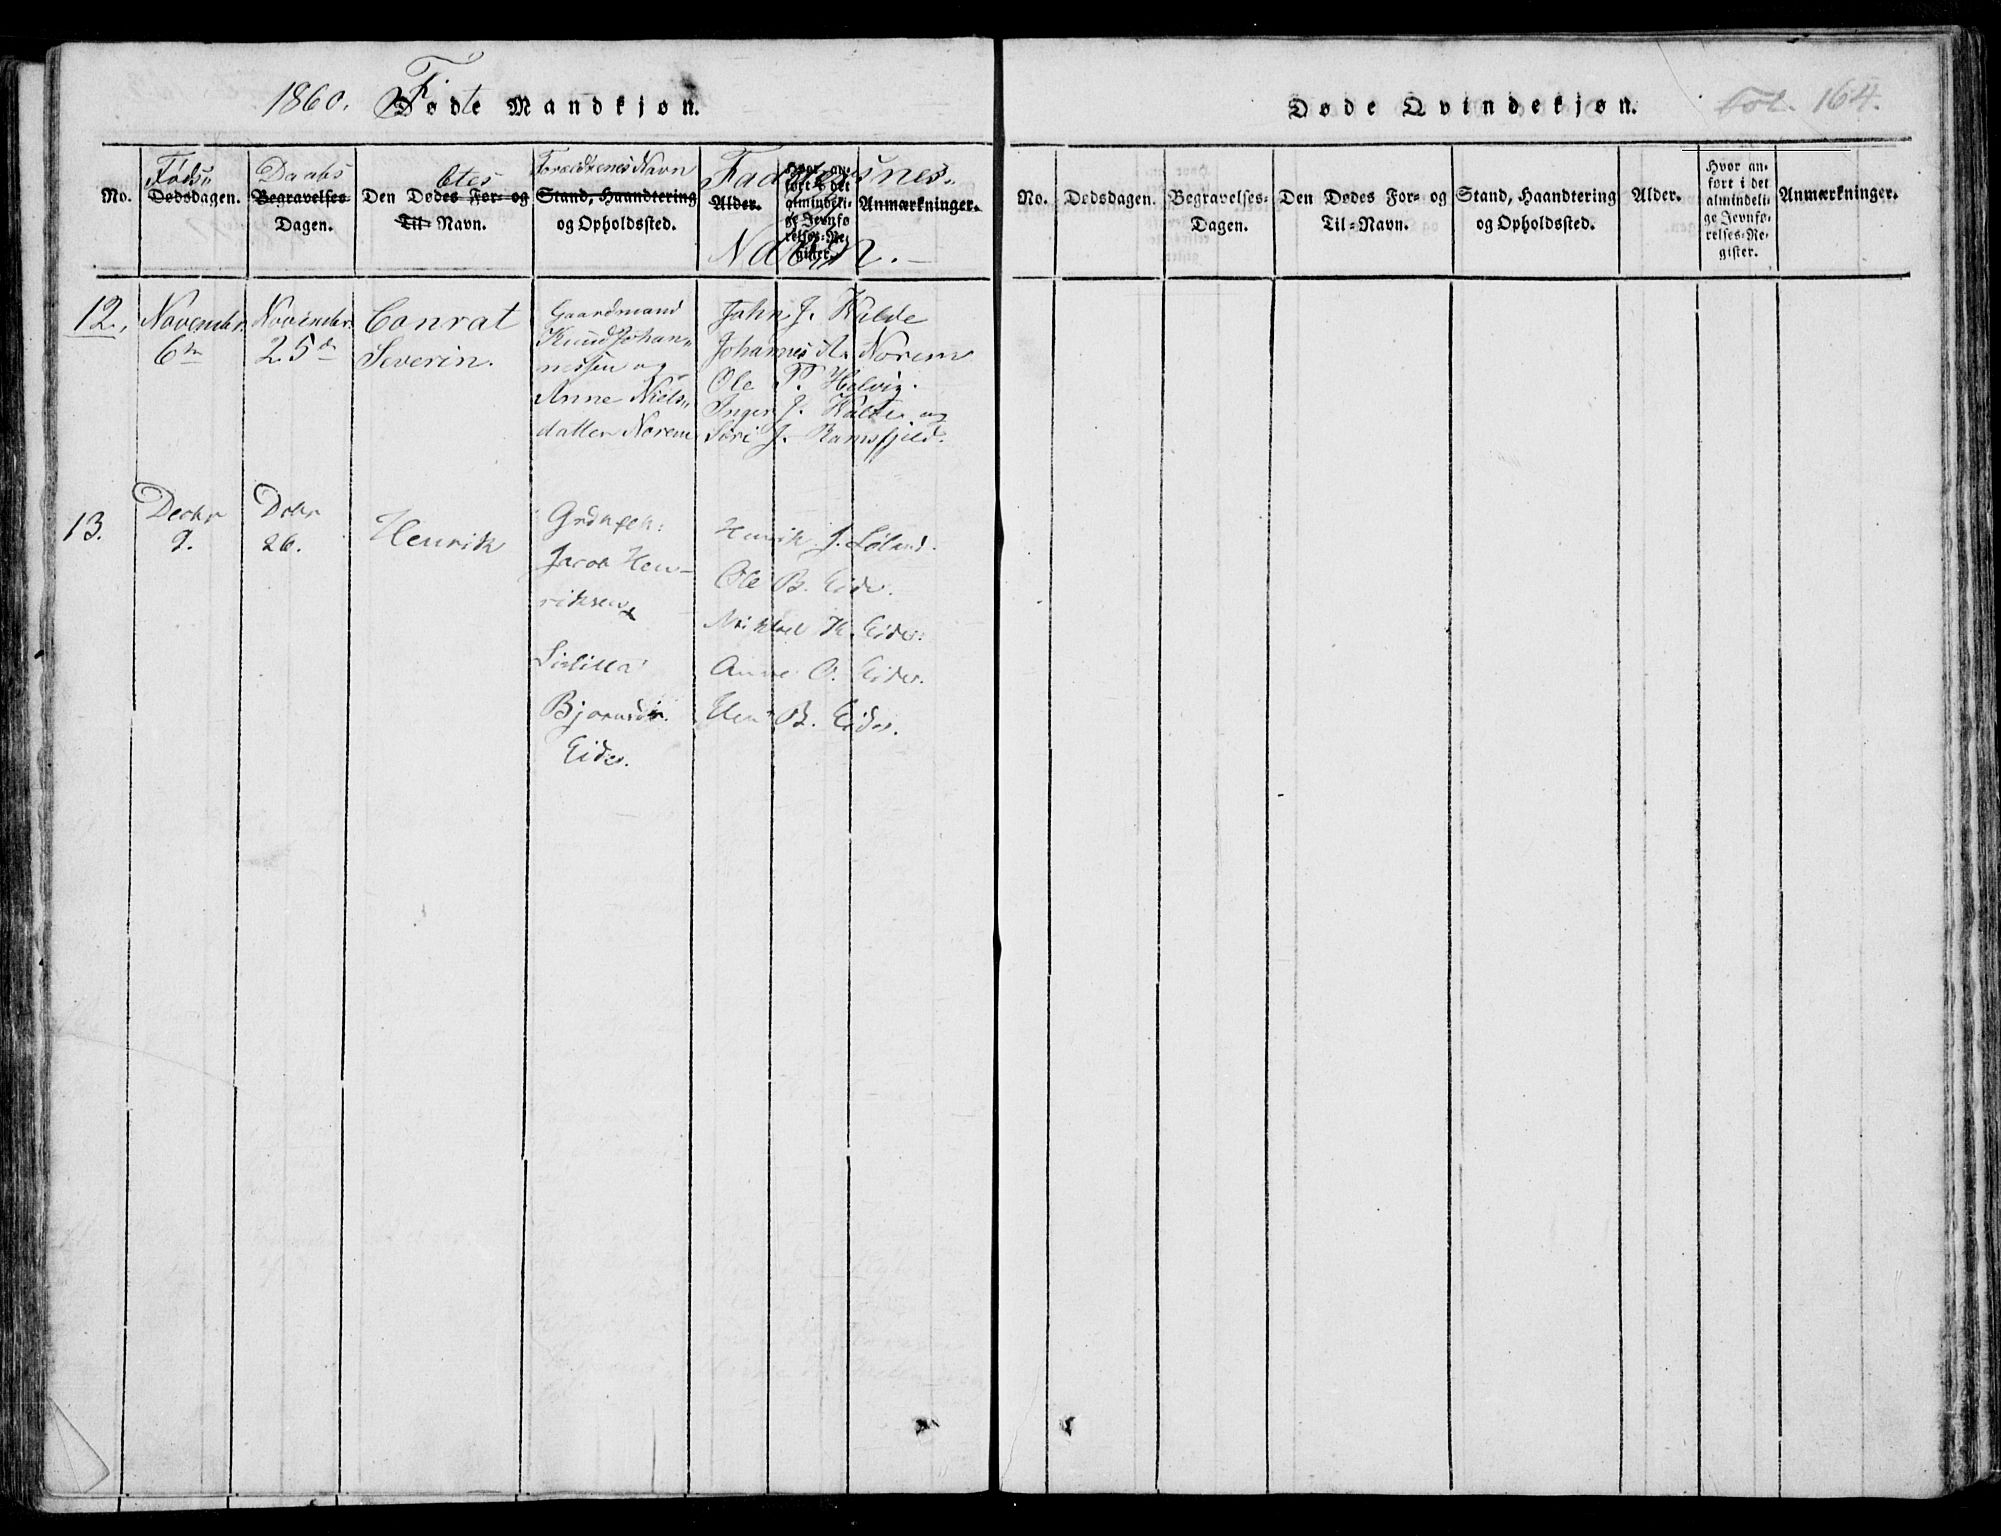 1860. Føde Mandkjøn.
No. Føds= Dødsdagen. Daabs Begravelses= Dagen. Den Dødes For= og Til= Navn. btes Forældrenes Navn Stand, Haandtering og Opholdssted. Alder. Hvor an= ført i det almindeli= ge Jevnfø= relses=Re= gister. Anmærkninger.
Faddernes= Navn.
12. November 6te November 25de Conrat Severin.
Gaardmand
Knud Johan=
nesen og
Anne Niels=
datter Norem
John J. Walde
Johannes A. Norem
Ole P. Helvig.
Inger J. Walde og
Siri J. Ramsfjeld.
13. Decbr 9. Dcbr 26. Henrik
Jacob Hen=
riksen
Bjørnsdr.
Eides.
Henrik J. Løland.
Ole B. Eide.
Mikkel K. Eides.
Anne O. Eides.
B. Eides.
Døde Qvindekjøn. Fol. 164.
No. Dødsdagen. Begravelses= Dagen. Den Dødes For= og Til=Navn. Stand, Haandtering og Opholdssted. Alder. Hvor an= ført i det almindeli= ge Jevnfø= relses=Re= gister. Anmærkninger.